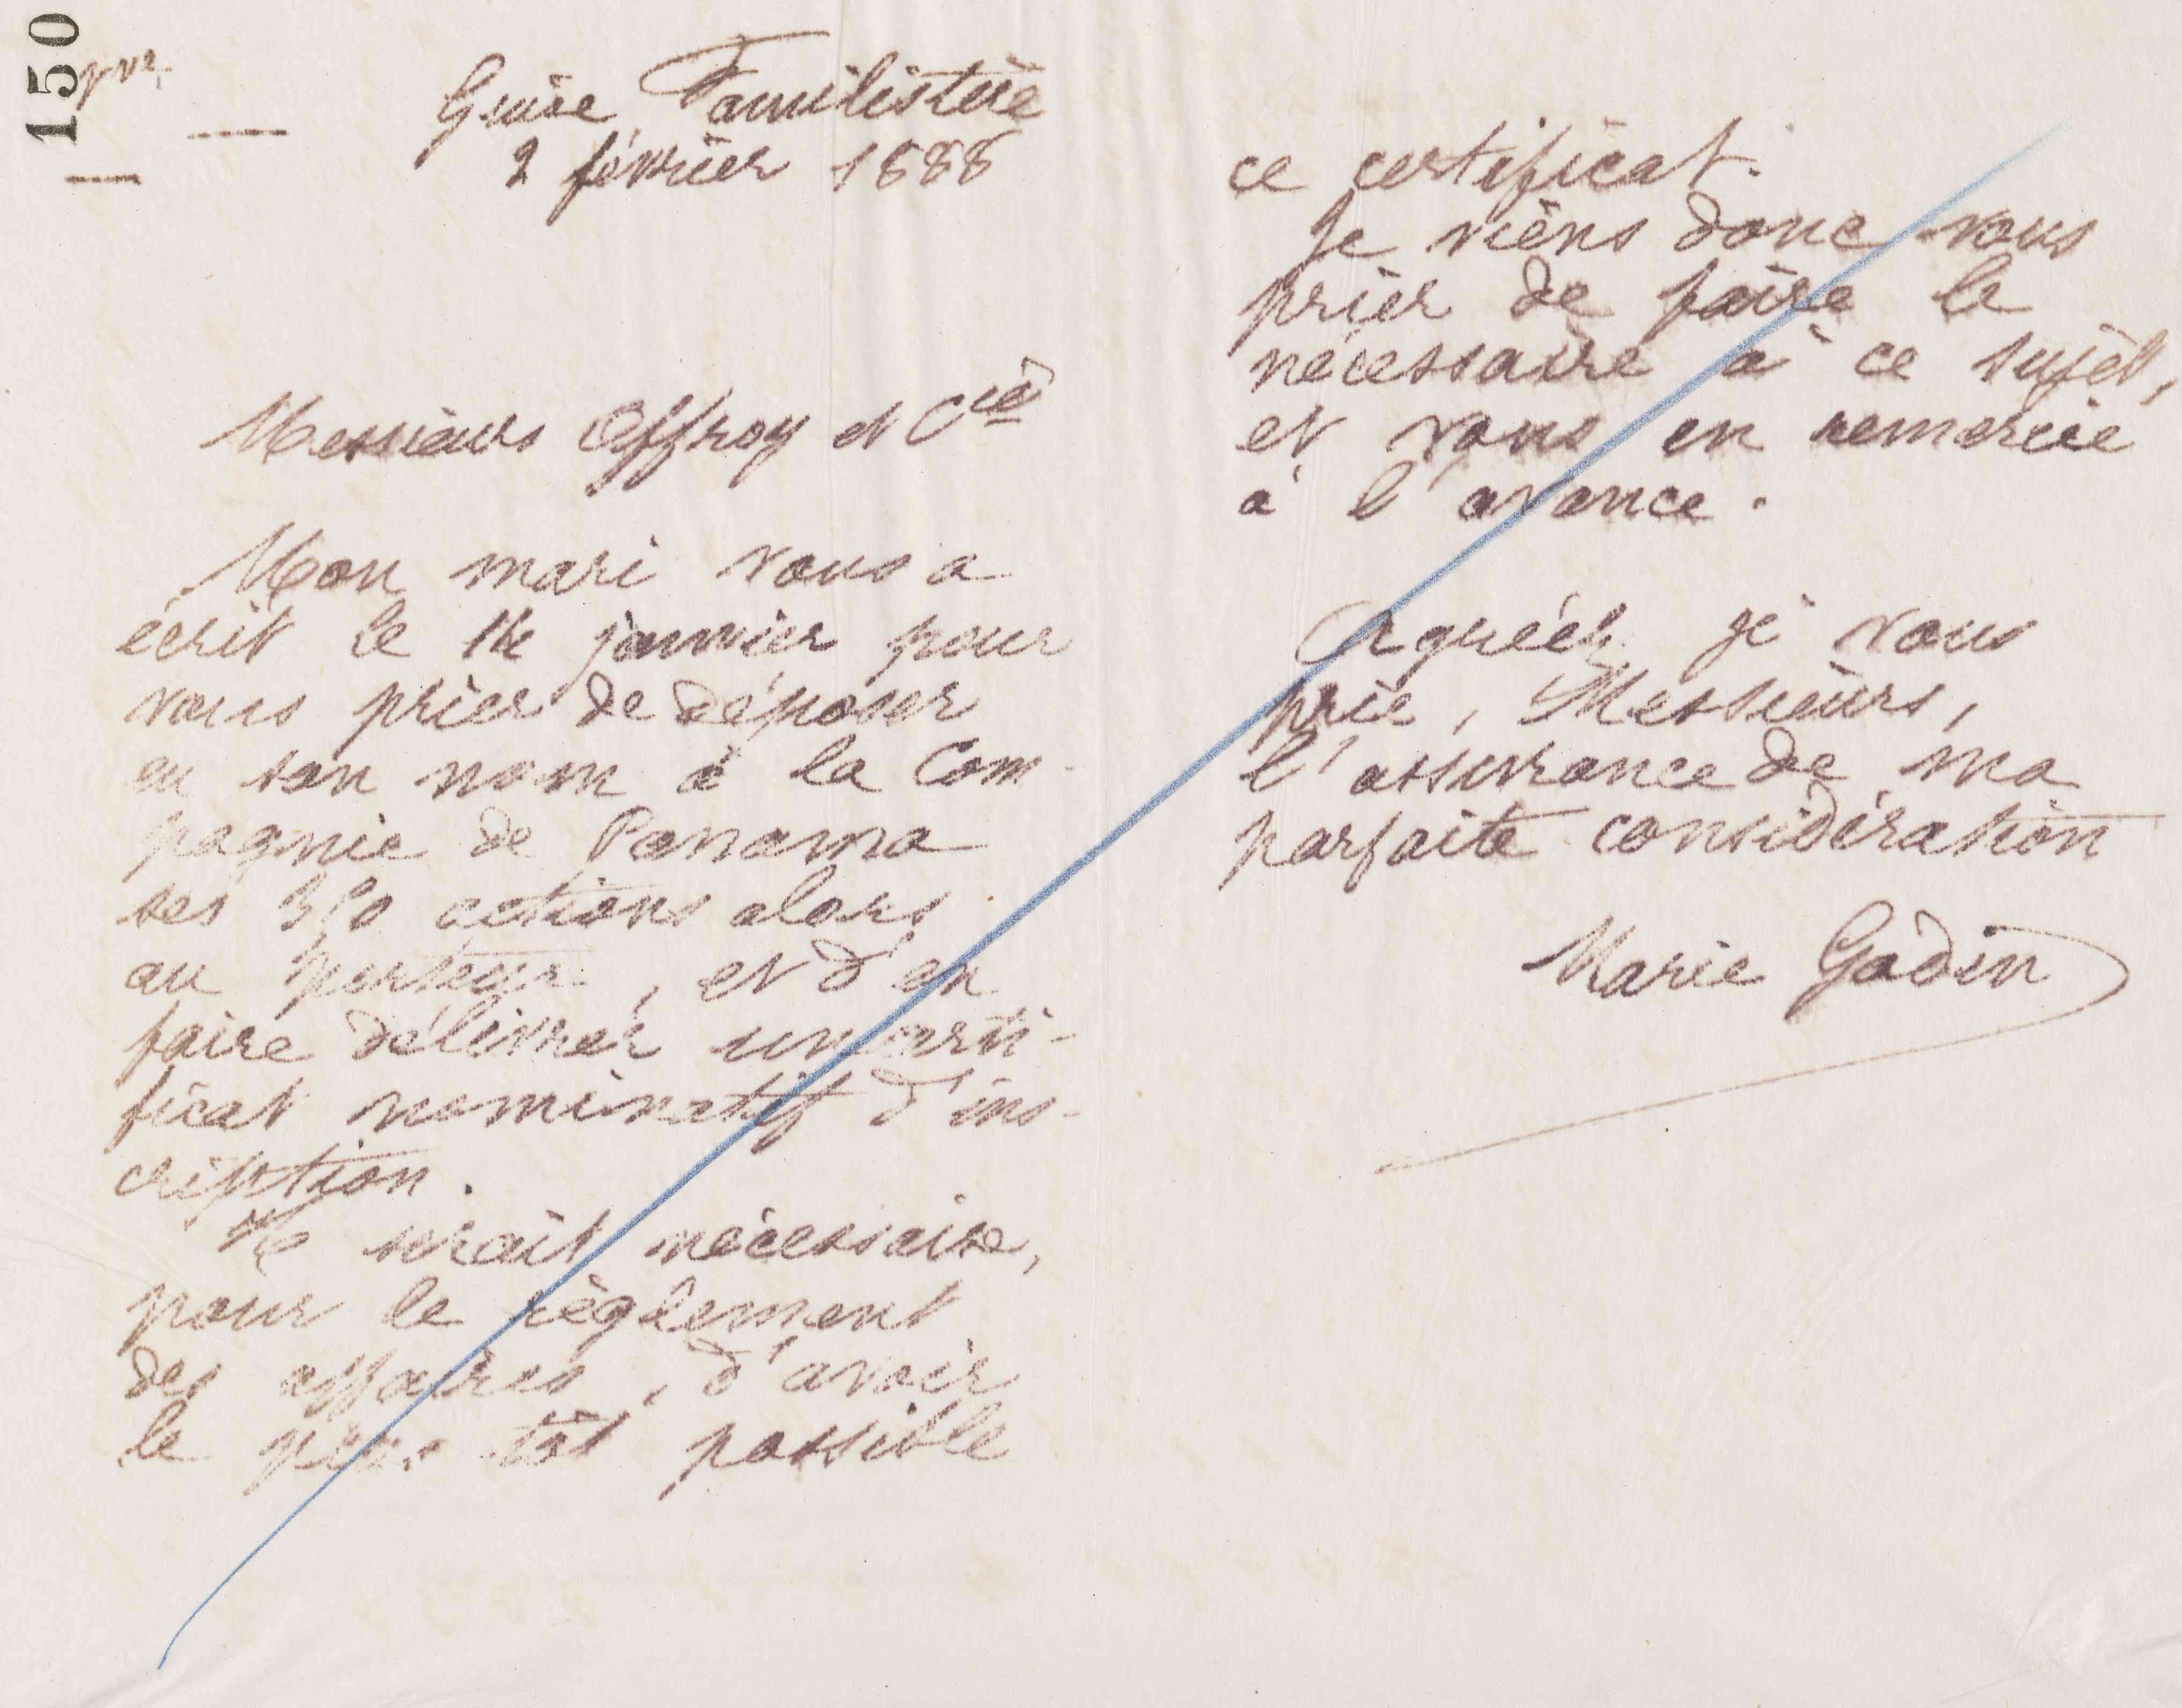 150
Guise Familistère
2 février 1888
Messieurs Offroy et Cie
Mon mari vous a
écrit le 14 janvier pour
vous prier de déposer
en son nom à la Com-
pagnie de Panama
ses actions alors
au porteur, et d'en
faire délivrer un certi-
ficat nominatif d'ins-
cription.
Il serait nécessaire,
pour le règlement
des affaires, d'avoir
le plus tôt possible
ce certificat.
Je viens donc vous
prier de faire le
nécessaire à ce sujet,
et vous en remercie
à l'avance.
Agréez, je vous
prie, Messieurs,
l'assurance de ma
parfaite considération
Marie Godin